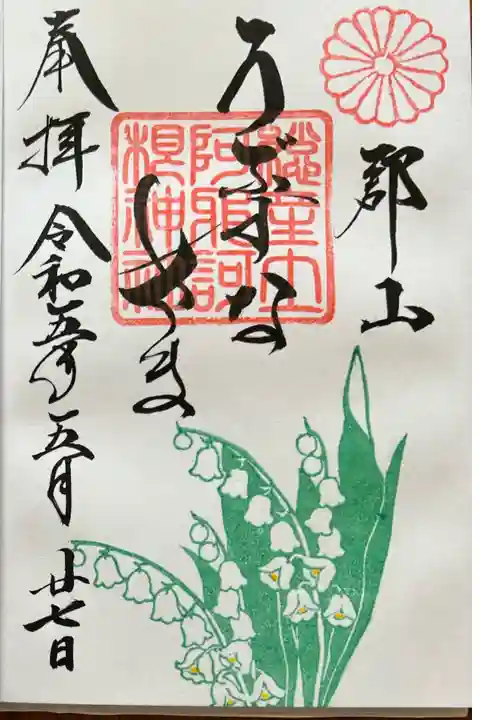 郡山
うぶすな
さま
總産土
阿邪訶
根神社
奉拝 令和五年五月廿七日